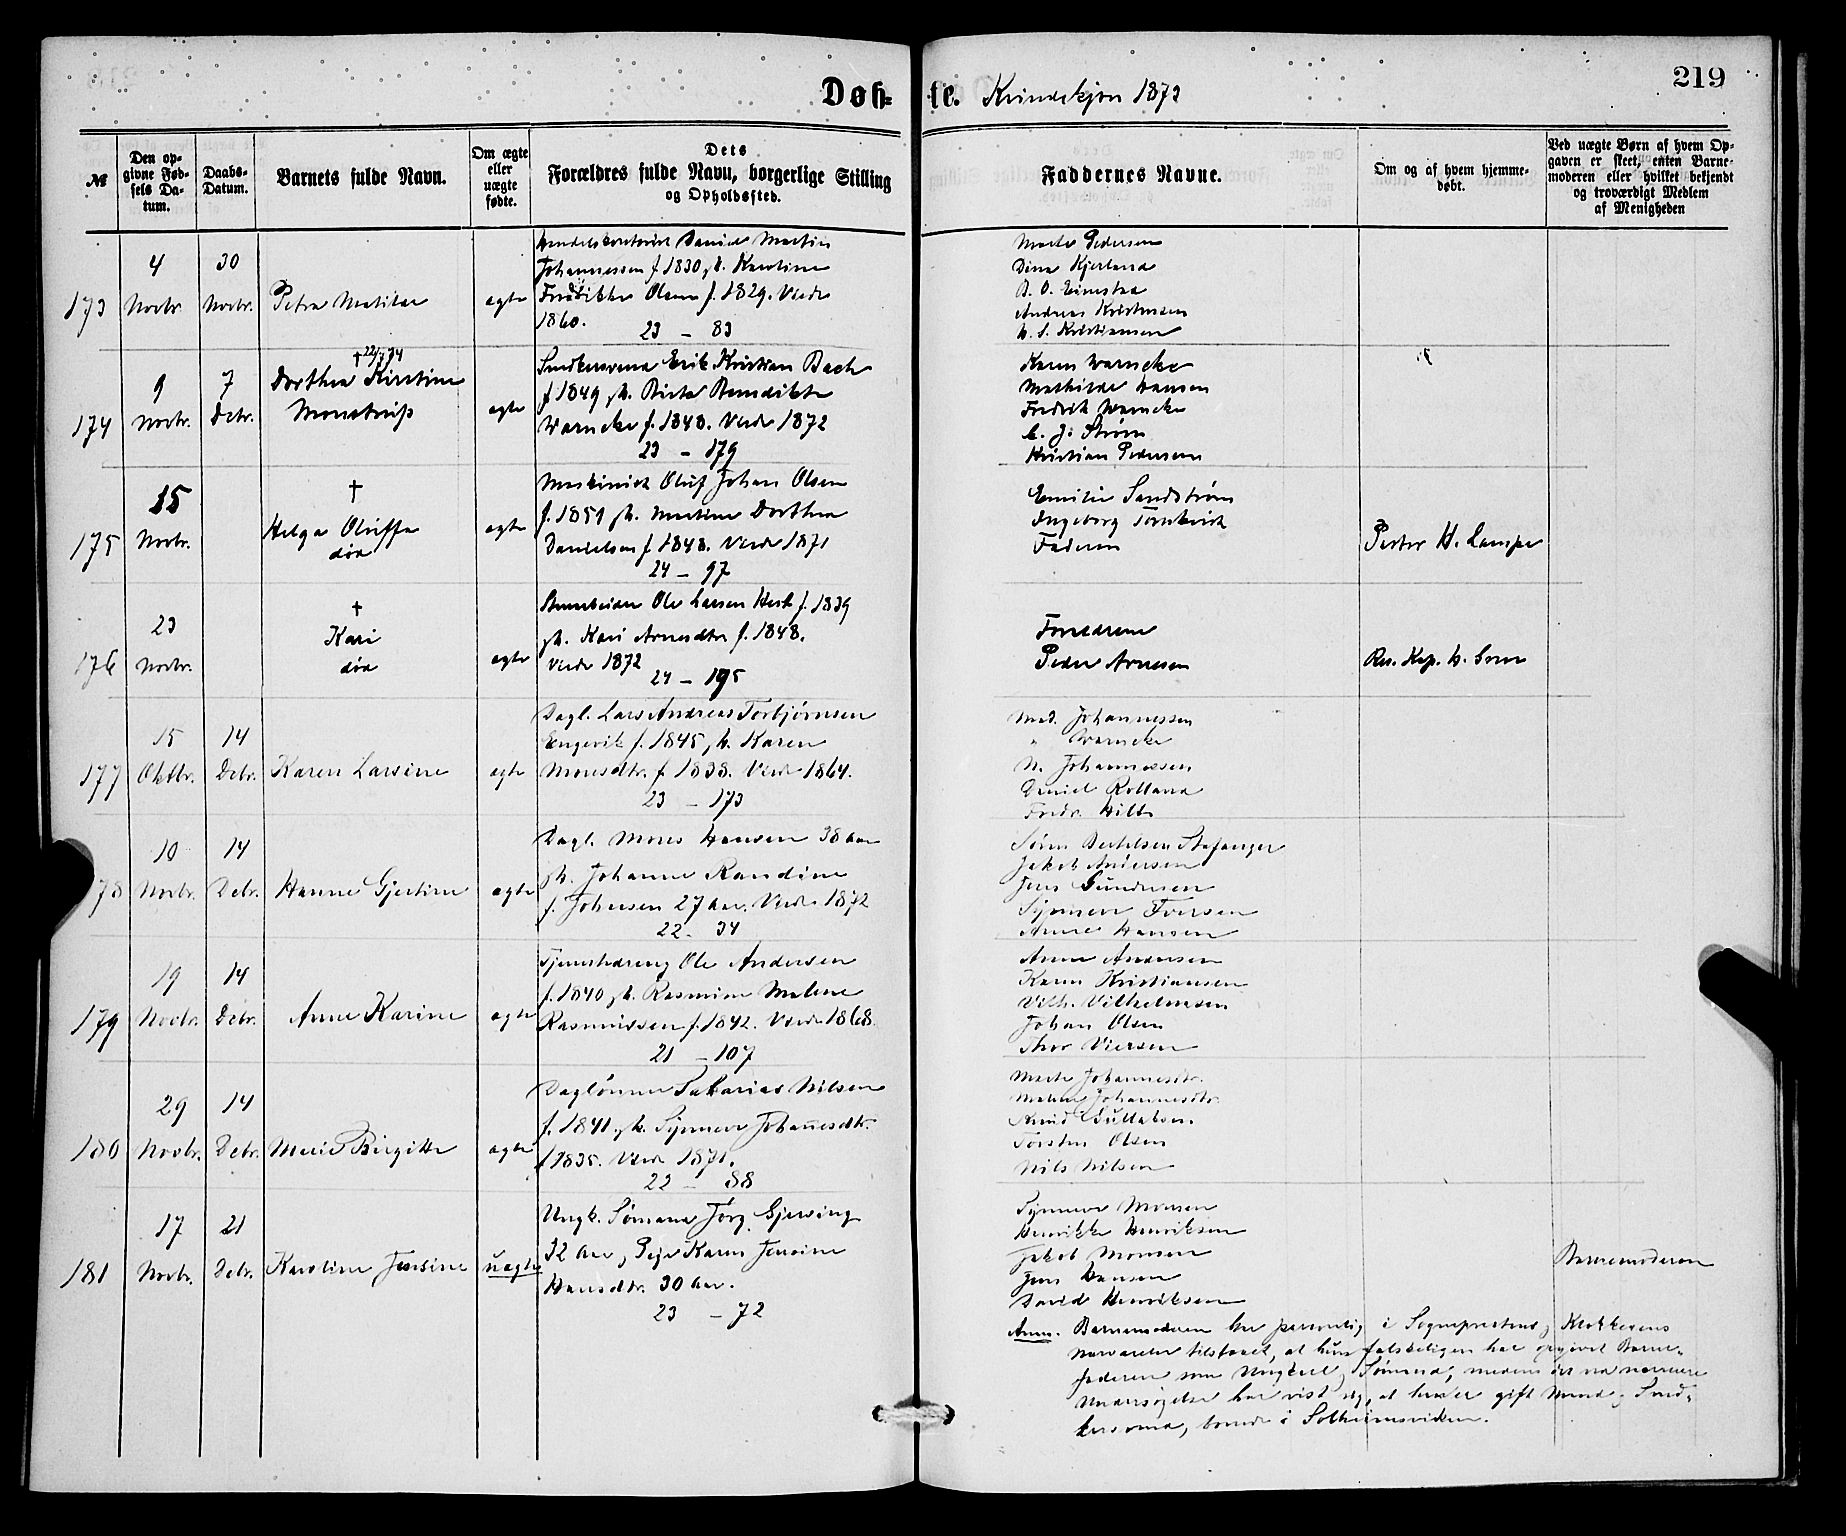 219
Døbte. Kvindekjøn 1873
№
Den opgivne Fødsels Datum.
Daabs-Datum.
Barnets fulde Navn.
Om ægte eller uægte fødte.
Dets Forældres fulde Navn, borgerlige Stilling og Opholdssted.
Faddernes Navne.
Om og af hvem hjemmedøbt.
Ved uægte Børn af hvem Opgaven er skeet, enten Barnemoderen eller hvilket bekjendt og troværdigt Medlem af Menigheden
173
4 Novbr.
30 Novbr.
Petra Matilde
ægte
Daniel Martin
Johannessen f. 1830, h. Karoline
Fredrikke Olsen f. 1829. Viede
1860.
23 – 83
Marte Pedersen
Dina Kjerland
Andreas Kristensen
Kristiansen
174
9 Novbr.
7 Debr.
† 22/7 74
Dorthea Kirstine
Monstrup
ægte
Smedsvend Erik Kristian Bach
f 1849, h. Birte Benedikte
Warncke f. 1848. Viede 1872
23 – 179
Karen Warncke
Mathilde Hansen
Fredrik Warncke
C. J. Strøm
Kristian Pedersen
175
15 Novbr.
†
Helga Oluffa
død
ægte
Maskinist Oluf Johan Olsen
f. 1851, h. Martine Dorthea
Danielsen f 1848. Viede 1871
24 – 97
Emilie Sandstrøm
Ingeborg
Faderen
Pastor H. Lampe
176
23 Novbr.
†
Kari
død
ægte
Ole Larsen f. 1839
h. Kari Arnesdtr f. 1848.
Viede 1872
24 – 195
Forældrene
Peder Arnesen
Res. Kap.
177
15 Oktbr.
14 Debr.
Karen Larsine
ægte
Dagl. Lars Andreas Torbjørnsen
Engevik f. 1845, h. Karen
Monsdtr. f 1838. Viede 1864.
23 – 173
Mad. Johannessen
" Warncke
N. Johannessen
Daniel Rolland
178
10 Novbr.
14 Debr.
Hanne Gjertine
ægte
Dagl. Mons Hansen 38 Aar
h. Johanne Randine
f. Johnsen 27 Aar. Viede 1872
22 – 34
Søren Bertelsen Stafanger
Jakob Andersen
Jens Gundersen
Synneve Iversen
Anne Hansen
179
19 Novbr.
14 Debr.
Anne Karine
ægte
Tjenestedreng Ole Andersen
f. 1840, h. Rasmine Malene
Rasmussen f. 1842. Viede 1868.
21 – 107
Anne Andersen
Karen Kristiansen
Vilh. Vilhelmsen
Johan Olsen
Thor
180
29 Novbr.
14 Debr.
Marie Birgitte
ægte
Daglønner Sakarias Nilsen
f. 1841, h. Synneve Johannesdtr.
f 1835. Viede 1871.
22 – 88
Marte Johannesdtr.
Malene Johannesdtr.
Torsten Olsen
Nils Nilsen
181
17 Novbr.
21 Debr.
Karoline Jensine
uægte
Ungk. Sømand Jørg. Gjersing
32 Aar, Pige Karen Jensine
Hansdtr. 30 Aar.
23 – 72
Synneve Monsen
Henrikke Henriksen
Jakob Monsen
Jens Hansen
David Henriksen
Barnemoderen
Anm. Barnemoderen har personlig i Sognepræstens og Klokkerens
Nærværelse tilstaaet, at hun falskeligen har opgivet Barne-
faderen som Ungkarl, Sømand, medens det ved nærmere
Undersøgelse har vist sig, at han er gift Mand, Smed-
kersvend, boende i Solheimsviken.